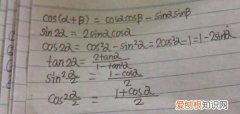 cos(α+β)=cosαcosβ-sinαsinβ
sin2α=2sinαcosα
cos2α=cos²α-sin²α=2cos²α-1=1-2sin²α
tan2α=2tanα/1-tan²α
sin²α/2=1-cosα/2
cos²α/2=1+cosα/2
爱刨根知识网